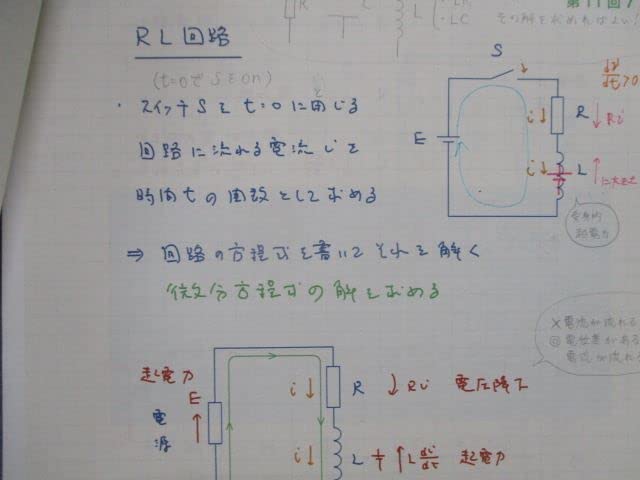 第11回
その解を求めればよい!
RL回路
(t=0でSをon)
・スイッチSをt=0に閉じる
回路に流れる電流iを
時間tの関数として求める
⇒ 回路の方程式を書いてそれを解く
微分方程式の解を求める
S
di/dt>0
E
i↓
R
↓Ri
i↓
L
起電力
×電流が流れる
◎電位差がある
電流が流れる
起電力
E
電源
i↓
R
↓Ri 電圧降下
i↓
L
↑L di/dt 起電力